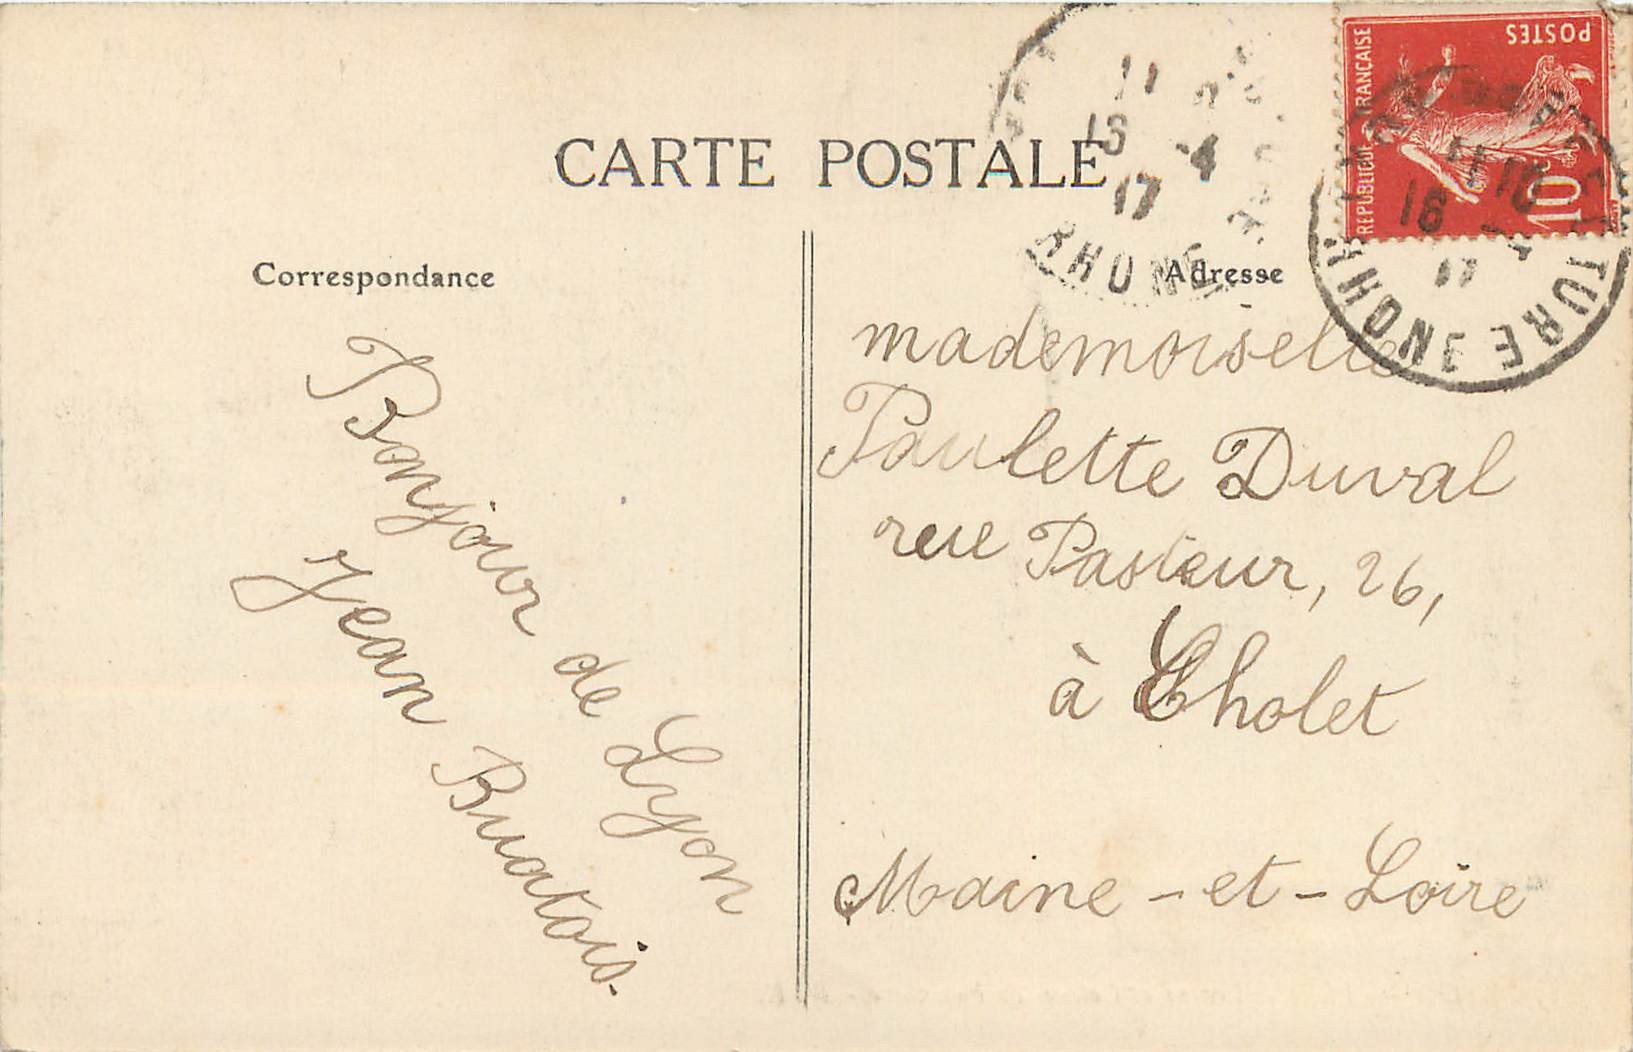 CARTE POSTALE
Correspondance
Bonjour de Lyon
Jean Buatois.
Adresse
mademoiselle
Paulette Duval
rue Pasteur, 26,
à Cholet
Maine-et-Loire
POSTES
REPUBLIQUE FRANCAISE
10
11
16 -4
17
RHONE
16
17
RHONE